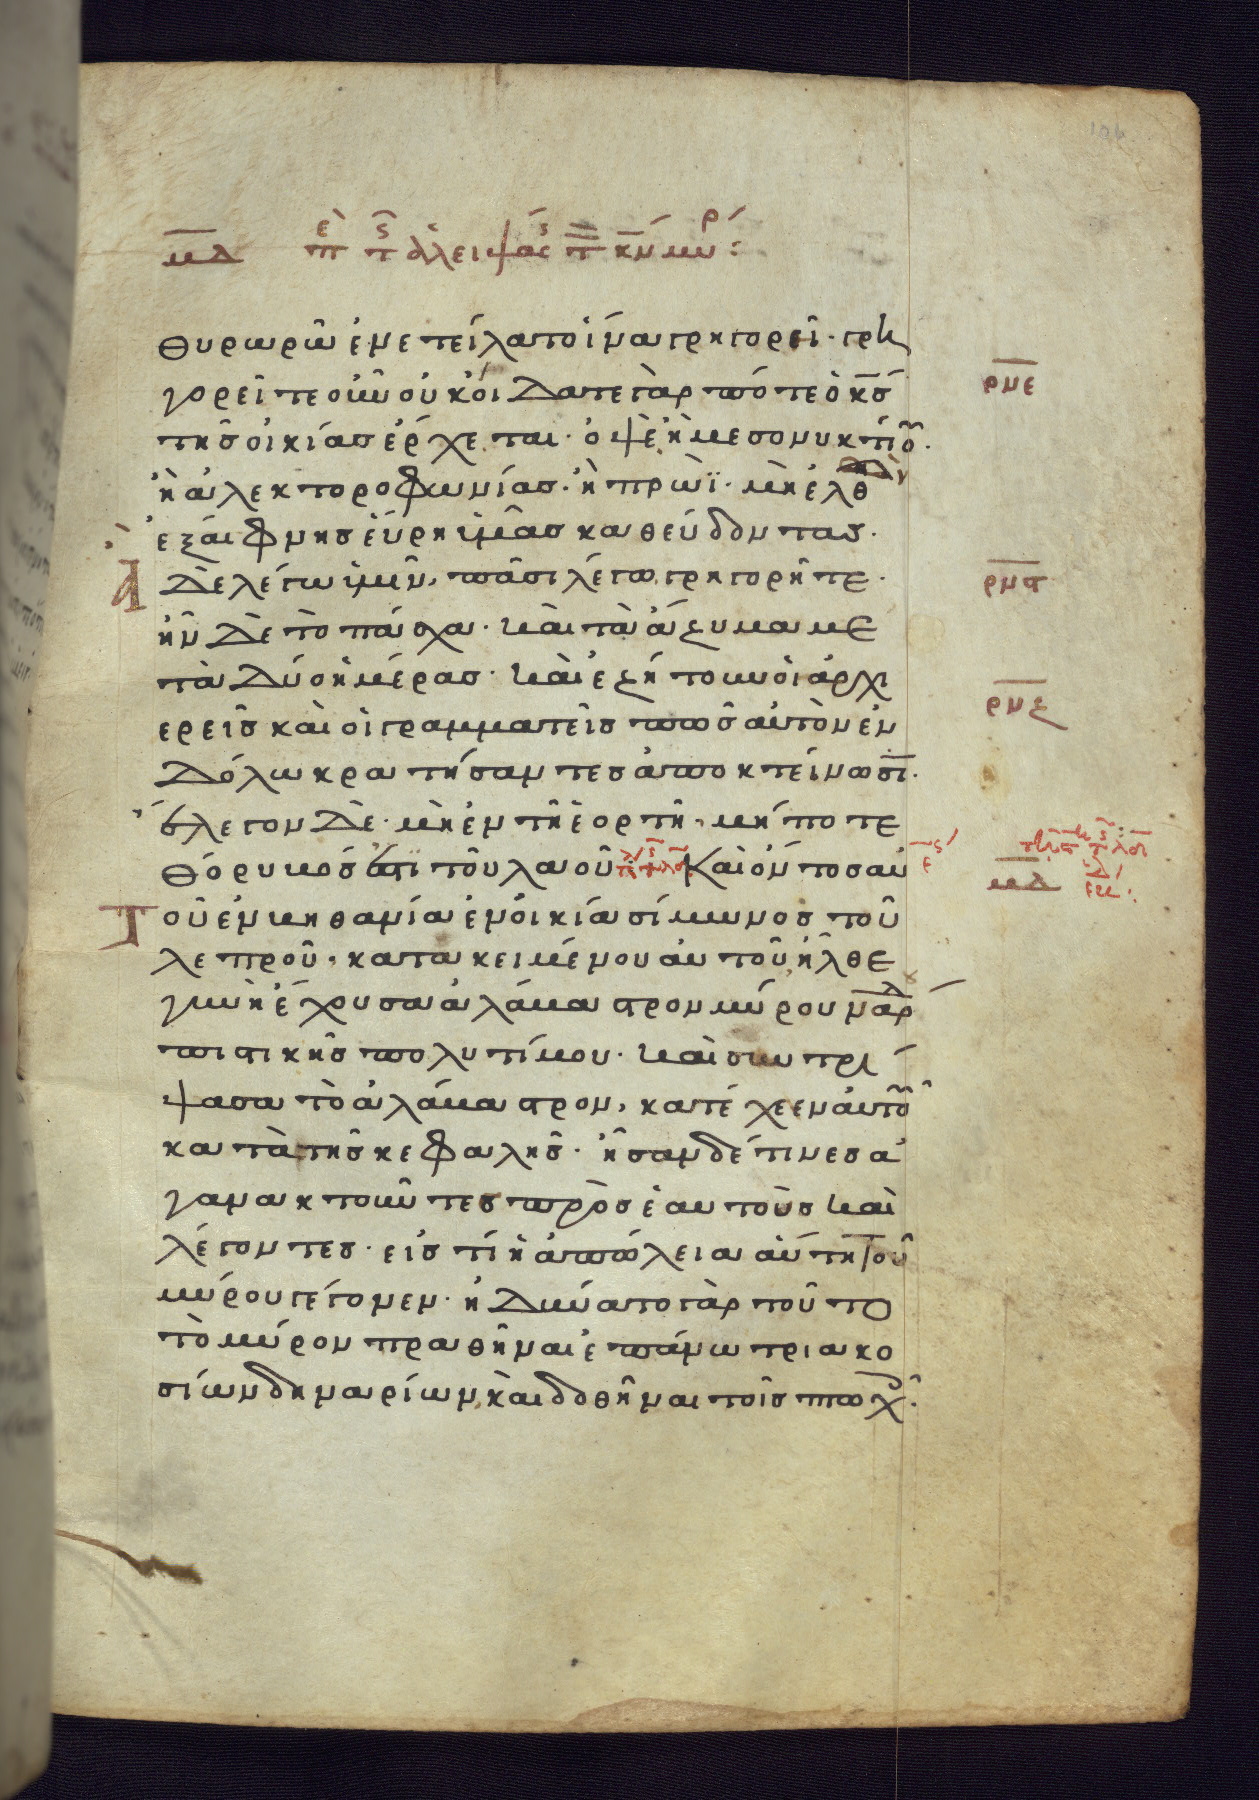 μδ πε τς αλειψάς τ κν μυρ:
θυρωρῶ ἐνετείλατο ἵνα γρηγορεῖ· γρη
γορεῖτε οὖν οὐκ οἴδατε γὰρ πότε ὁ κς
τῆς οἰκίας ἔρχεται· ὀψὲ ἢ μεσονυκτίου·
ἢ ἀλεκτοροφωνίας· ἢ πρωΐ· μὴ ἐλθὼν
ἐξαίφνης εὕρη ὑμᾶς καθεύδοντας·
Ἃ δὲ λέγω ὑμῖν, πᾶσι λέγω, γρηγορῆτε·
ἦν δὲ τὸ πάσχα· καὶ τὰ ἄζυμα με
τὰ δύο ἡμέρας· καὶ ἐζήτουν οἱ ἀρχι
ερεῖς καὶ οἱ γραμματεῖς πῶς αὐτὸν ἐν
δόλω κρατήσαντες ἀποκτείνωσι·
ἔλεγον δὲ· μὴ ἐν τῆ ἑορτῆ· μήποτε
θόρυβος ἔσται τοῦ λαοῦ· Καὶ ὄντος αὐ
τοῦ ἐν βηθανία ἐν οἰκία σίμωνος τοῦ
λεπροῦ· κατακειμένου αὐτοῦ ἦλθε
γυνὴ ἔχουσα ἀλάβαστρον μύρου νάρδ
πιστικῆς πολυτίμου· καὶ συντρί
ψασα τὸ ἀλάβαστρον, κατέχεεν αὐτοῦ
κατὰ τῆς κεφαλῆς· ἦσαν δέ τινες ἀ
γανακτοῦντες πρὸς ἑαυτοὺς καὶ
λέγοντες· εἰς τί ἡ ἀπώλεια αὕτη τοῦ
μύρου γέγονεν· ἠδύνατο γὰρ τοῦτο
τὸ μύρον πραθῆναι ἐπάνω τριακο
σίων δηναρίων, καὶ δοθῆναι τοῖς πτωχ·
ρμε
ρμς
ρμζ
μδ